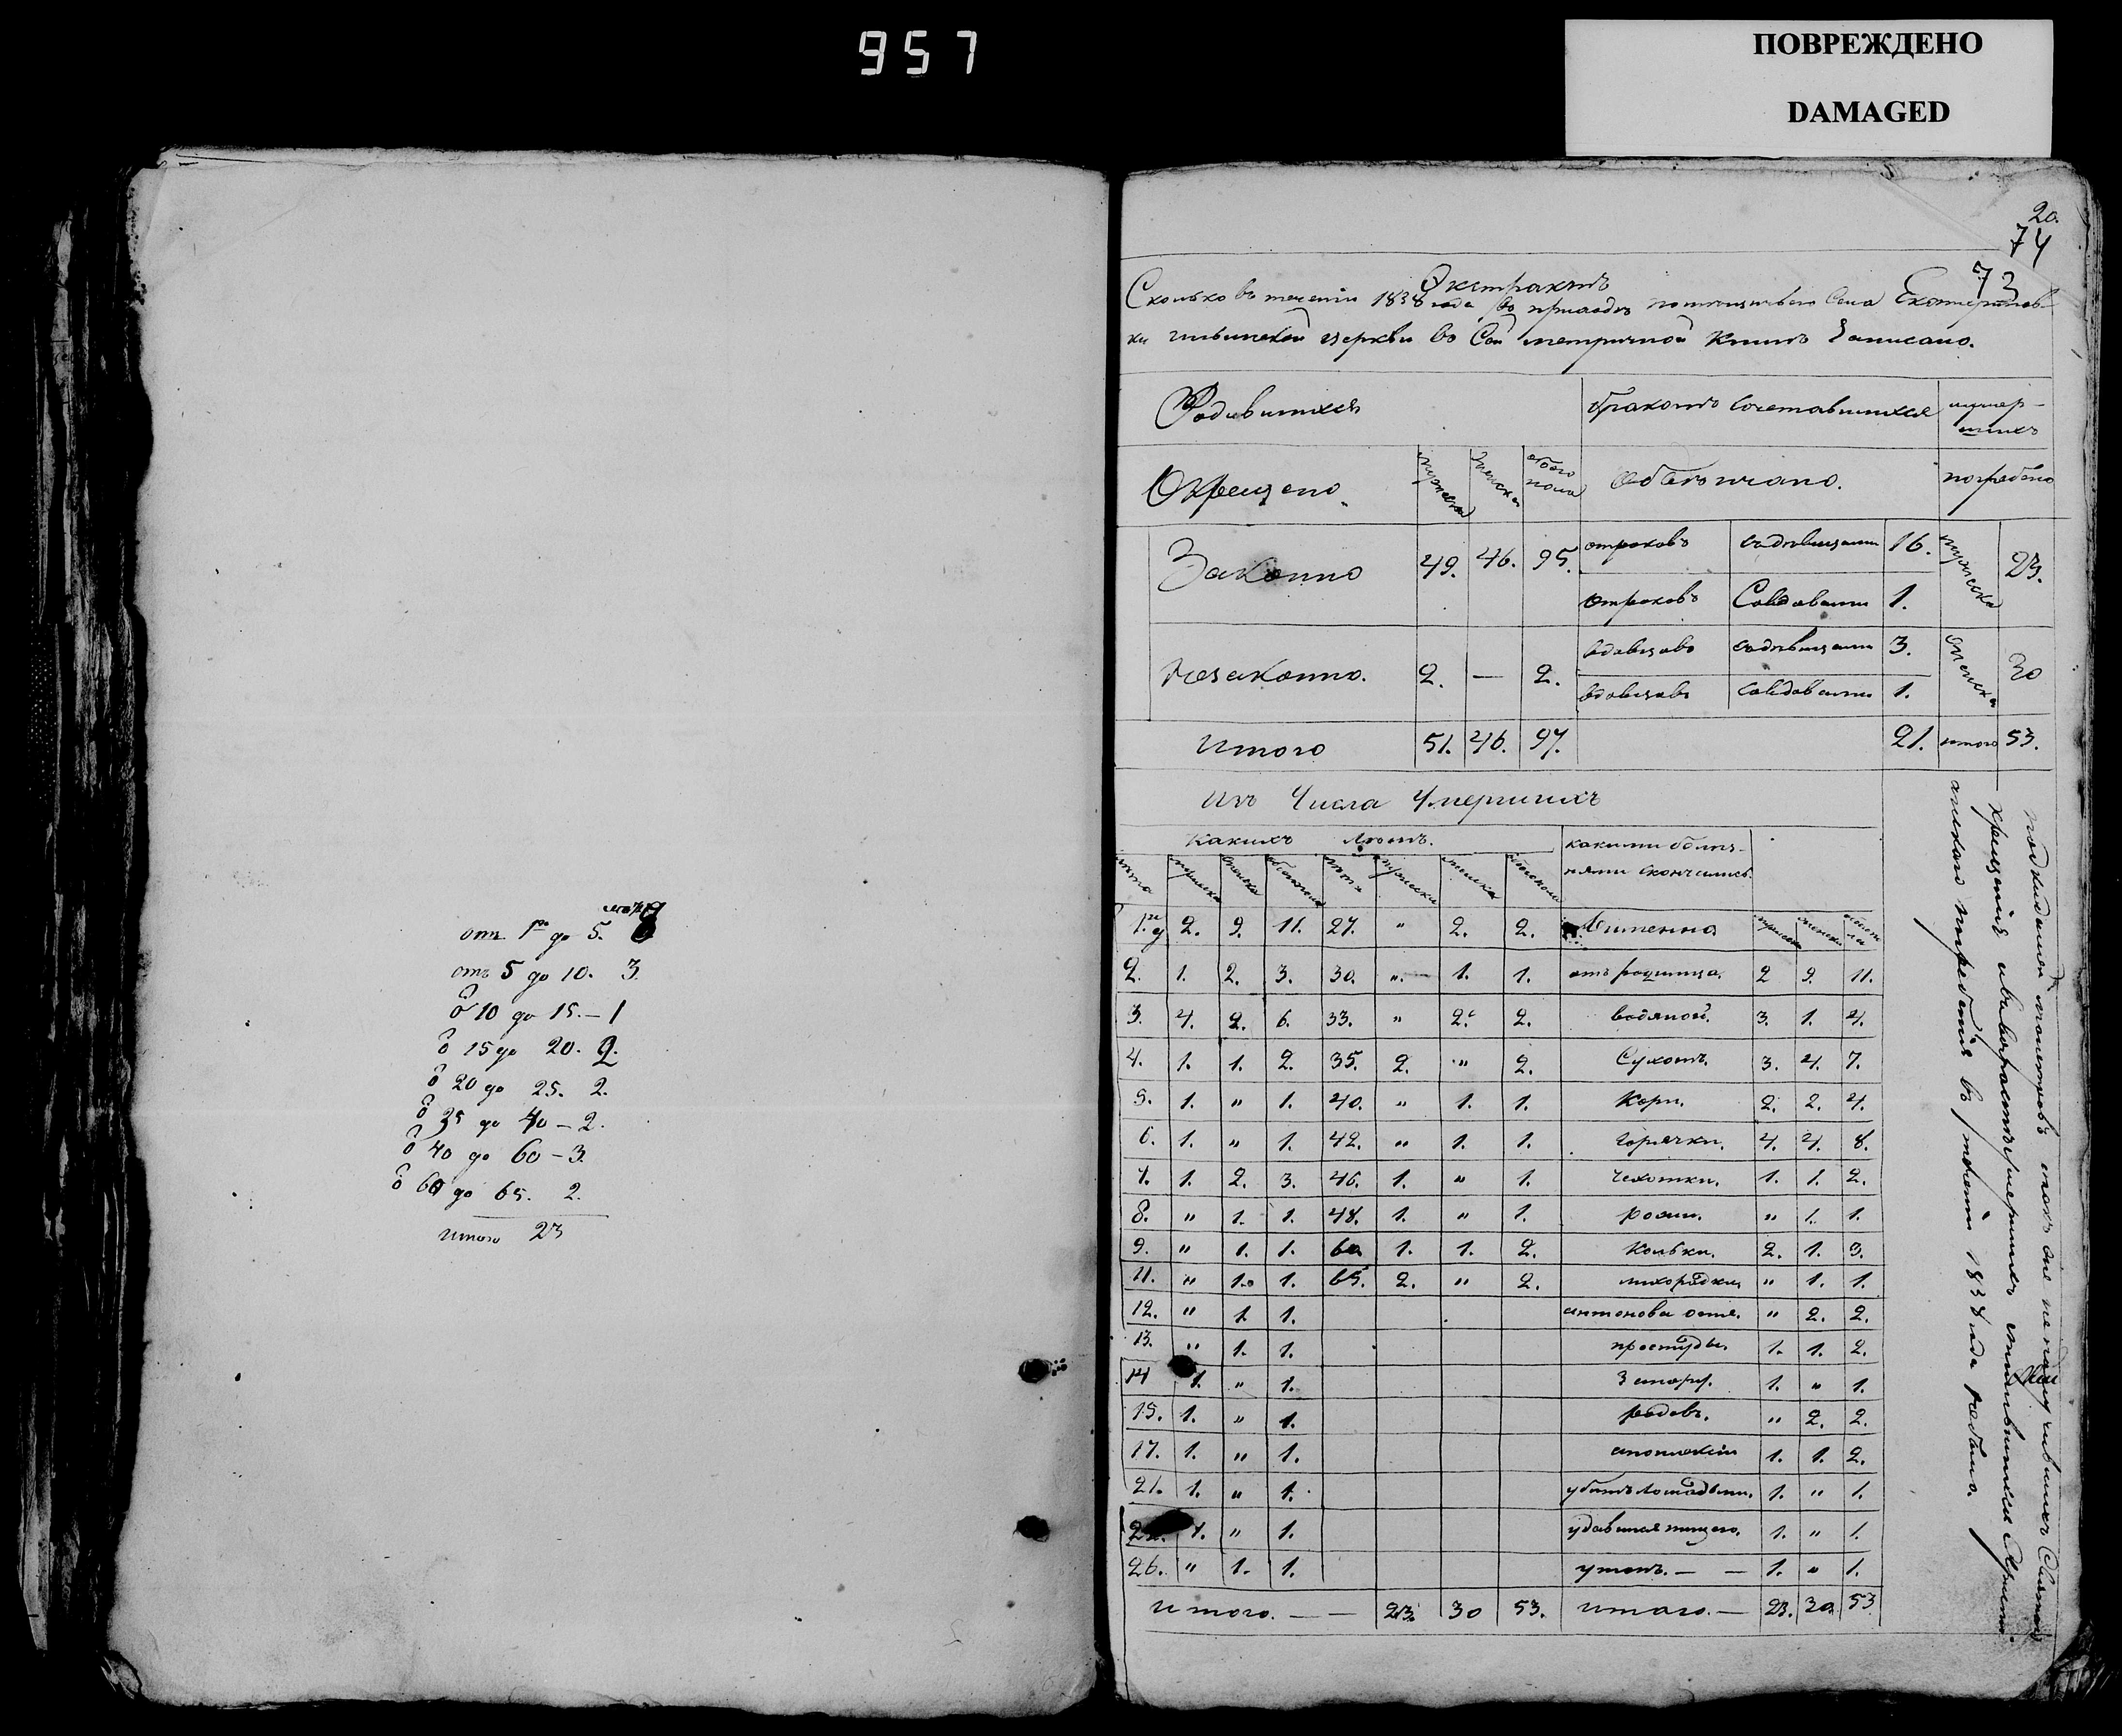 957
ПОВРЕЖДЕНО
DAMAGED
от 1го до 5. 8
отъ 5 до 10. 3.
10 до 15. — 1
15 до 20. 2.
20 до 25. 2.
35 до 40 — 2.
40 до 60 — 3.
60 до 65. 2.
итого 23
20.
74
73
Экстрактъ
Сколько въ теченіи 1838 года въ приходѣ села Екатеринов-
ки церкви во Сей метричной Книгѣ Записано.
Родившихся
бракомъ сочетавшихся
умер-
шихъ
Окрещено.
мужеска
женска
обоего пола
Обвѣнчано.
погребено
Законно 49. 46. 95.
отроковъ съ девицами 16.
мужеска 23.
отроковъ Совдовами 1.
Незаконно. 2. — 2.
вдовцовъ съ девицами 3.
женска 30
вдовцовъ совдовами 1.
Итого 51. 46. 97. 21. итого 53.
Изъ Числа Умершихъ
Какихъ лѣтъ.
какими болѣз-
нями скончались.
лѣта мужеска женска обоего лѣта мужеска женска обоего пола
1го 2. 9. 11. 27. " 2. 2. Именно мужеска женска обоего пола
2. 1. 2. 3. 30. " 1. 1. отъ родимца. 2 9. 11.
3. 4. 2. 6. 33. " 2. 2. водяной. 3. 1. 4.
4. 1. 1. 2. 35. 2. " 2. Сухотъ. 3. 4. 7.
5. 1. " 1. 40. " 1. 1. Кори. 2. 2. 4.
6. 1. " 1. 42. " 1. 1. горячки. 4. 4. 8.
7. 1. 2. 3. 46. 1. " 1. чехотки. 1. 1. 2.
8. " 1. 1. 48. 1. " 1. рожи. " 1. 1.
9. " 1. 1. 60. 1. 1. 2. Кольки. 2. 1. 3.
11. " 1. 1. 65. 2. " 2. лихорадки " 1. 1.
12. " 1. 1. антонова огня. " 2. 2.
13. " 1. 1. простуды. 1. 1. 2.
14 1. " 1. 1. " 1.
15. 1. " 1. родовъ. " 2. 2.
17. 1. " 1. апоплексіи 1. 1. 2.
21. 1. " 1. убитъ лошадьми. 1. " 1.
22. 1. " 1. удавился 1. " 1.
26. " 1. 1. утонъ. — — 1. " 1.
Итого. — — 23. 30 53. итого. — 23. 30. 53
подкидышей младенцовъ такъ же не получившихъ Святаго
крещенія
погребенія въ теченіи 1838 года небыло.